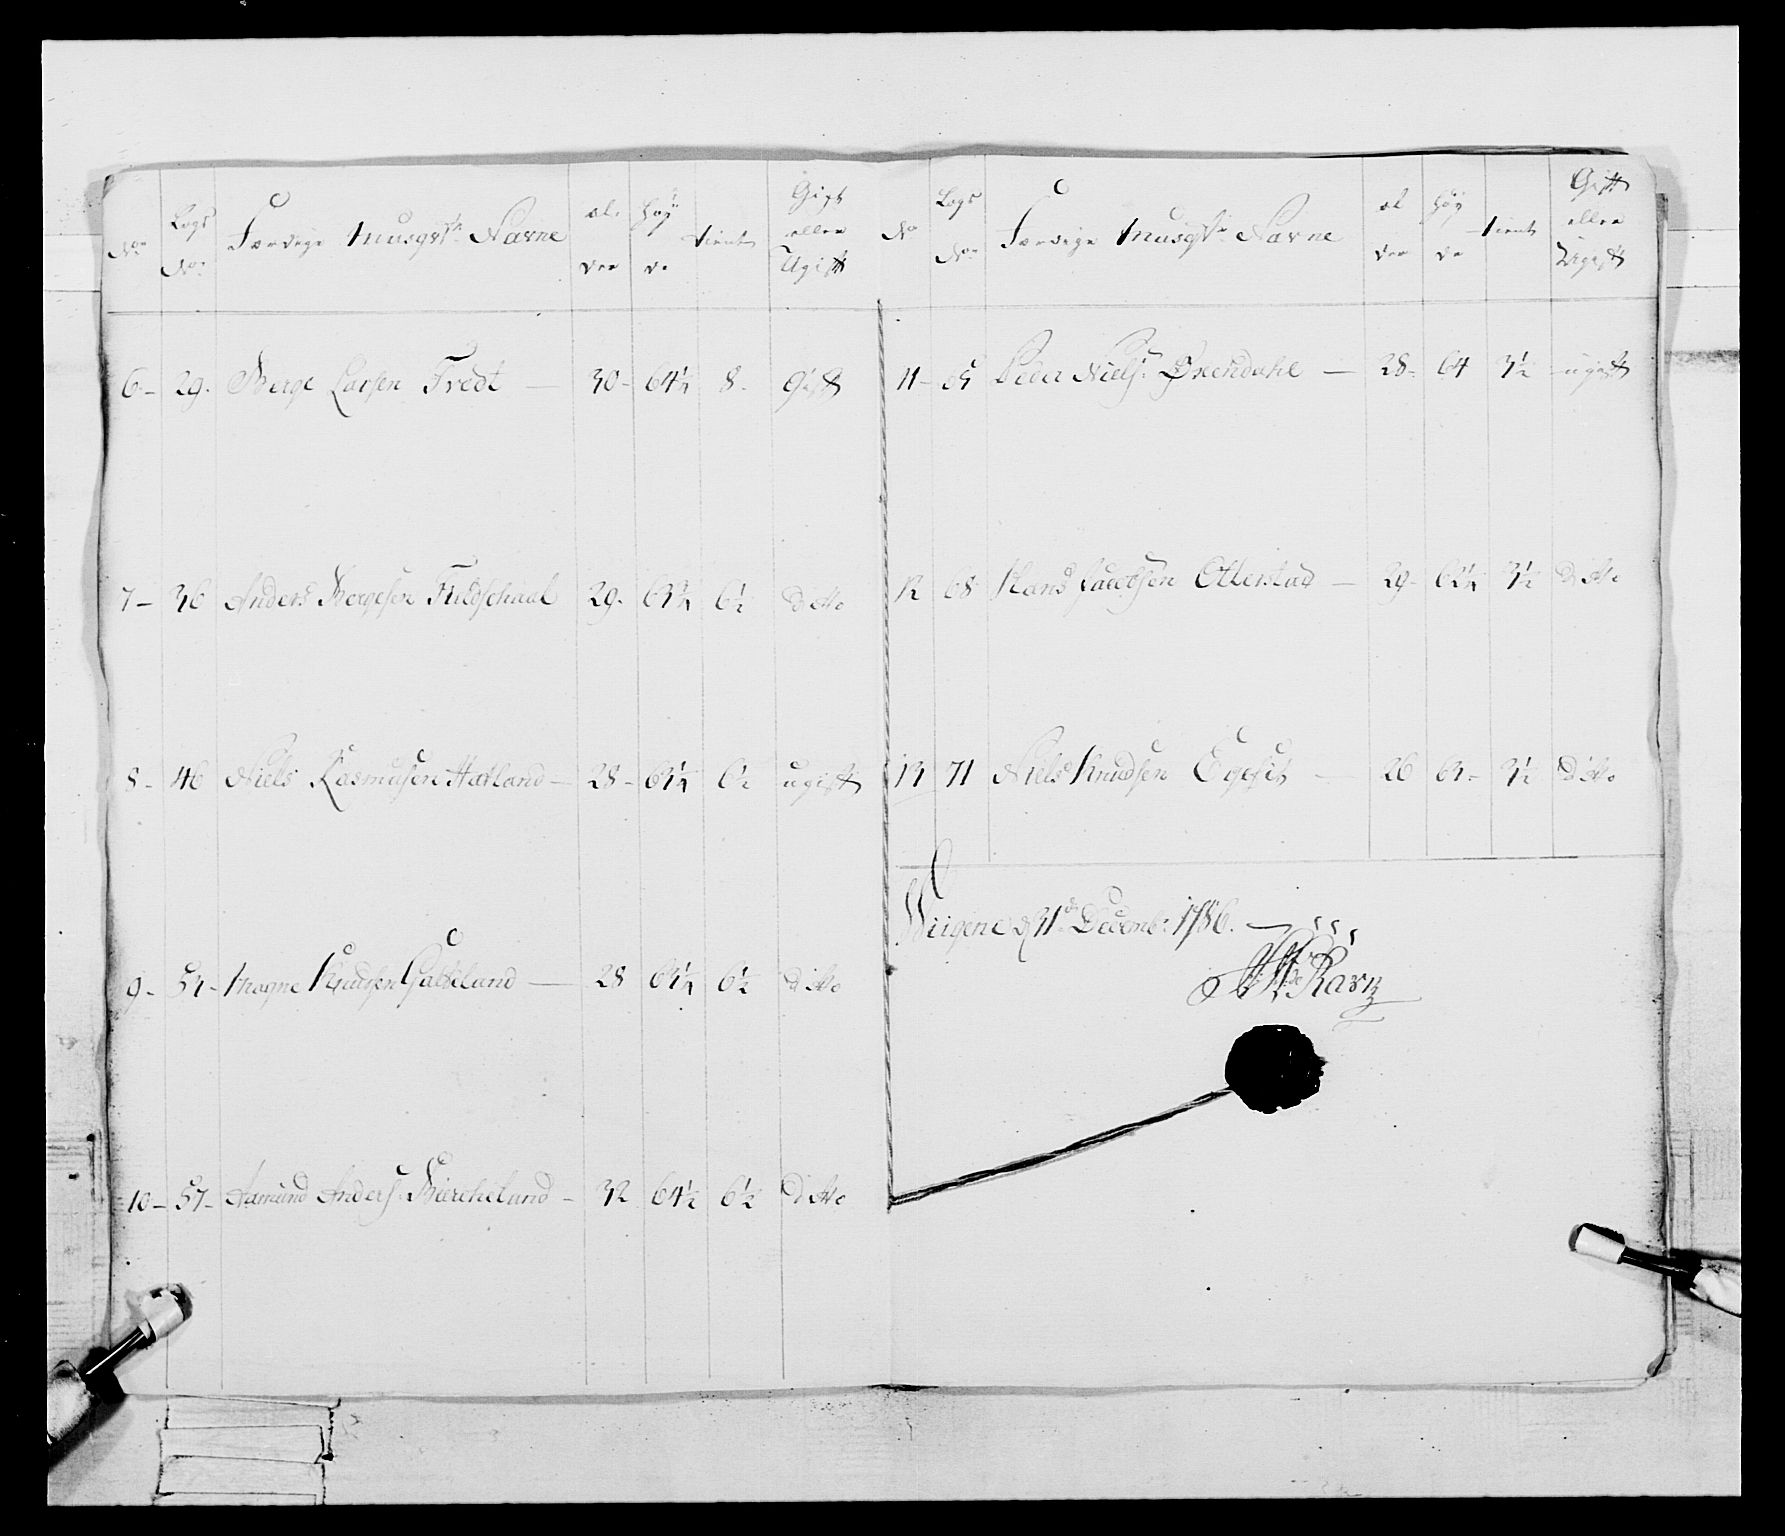 No Lægs No Færdige Musqvt: Navne al: der Høy de tient Gift eller Ugift
6 - 29. Berge Larsen Tredt — 30 - 64 1/4 8 - Gift
7 - 36 Anders Bergesen Fuldschaal 29. 63 3/4 6 1/2 dito
8 - 46 Niels Rasmusen Hatland — 28 - 63 1/4 6 1/2 ugift
9 - 54 - Mogne Knudsen — 28 63 1/4 6 1/2 dito
10 - 57 - Aamund Anders: Bierkeland - 32 64 1/2 6 1/2 dito
No Lægs No Færdige Musqvt: Navne al der Høy de tient Gift eller Ugift
11 - 65 Peder Niels: Øxendahl — 28 - 64 3 1/2 ugift
12 68 Hans Jacobsen Otterstad — 29 - 62 1/4 3 1/2 dito
13 71 Niels Knudsen Egeset - 26 63 - 3 1/2 dito
Wiigene d 31te Decemb: 1786.